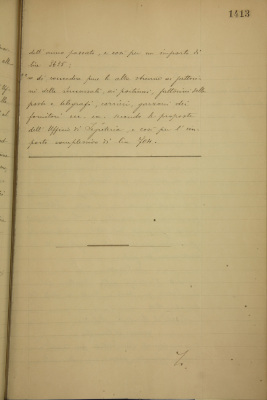 1413
dell'anno passato, e così per un importo di
lire 2415;
di concedere pure le altre strenne ai fattori-
ni della, ai portieri, fattorini della
posta e telegrafi, corrieri, garzoni dei
fornitori ecc. ecc. secondo le proposte
dell'Ufficio di Segreteria, e così per l'im-
porto complessivo di lire